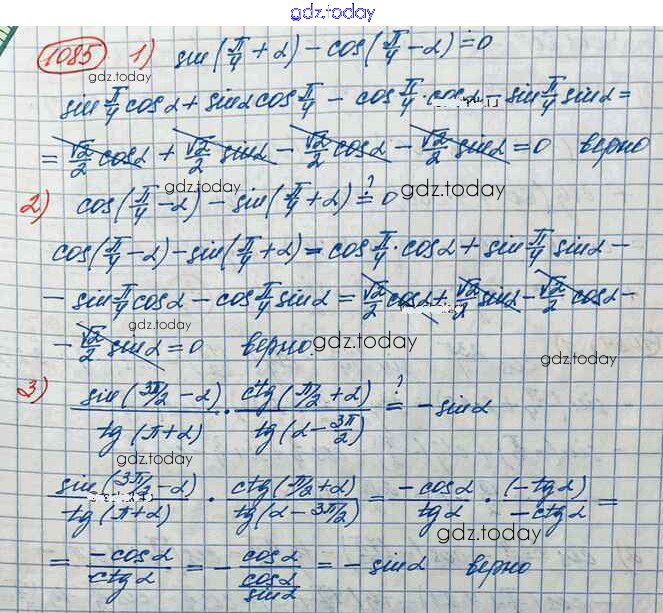 gdz.today
1085 1) sin(π/4 + α) - cos(π/4 - α) ≟ 0
gdz.today
sin π/4 cosα + sinα cos π/4 - cos π/4 · cosα - sin π/4 sinα =
gdz.today
= √2/2 cosα + √2/2 sinα - √2/2 cosα - √2/2 sinα = 0 верно
gdz.today
gdz.today
2) cos(π/4 - α) - sin(π/4 + α) ≟ 0
cos(π/4 - α) - sin(π/4 + α) = cos π/4 · cosα + sin π/4 sinα -
- sin π/4 cosα - cos π/4 sinα = √2/2 cosα + √2/2 sinα - √2/2 cosα -
gdz.today
- √2/2 sinα = 0 верно.
gdz.today
gdz.today
3) sin(3π/2 - α)/tg(π + α) · ctg(π/2 + α)/tg(α - 3π/2) ≟ - sinα
gdz.today
sin(3π/2 - α)/tg(π + α) · ctg(π/2 + α)/tg(α - 3π/2) = -cosα/tgα · (-tgα)/-ctgα =
gdz.today
= -cosα/ctgα = - cosα/(cosα/sinα) = - sinα верно
gdz.today